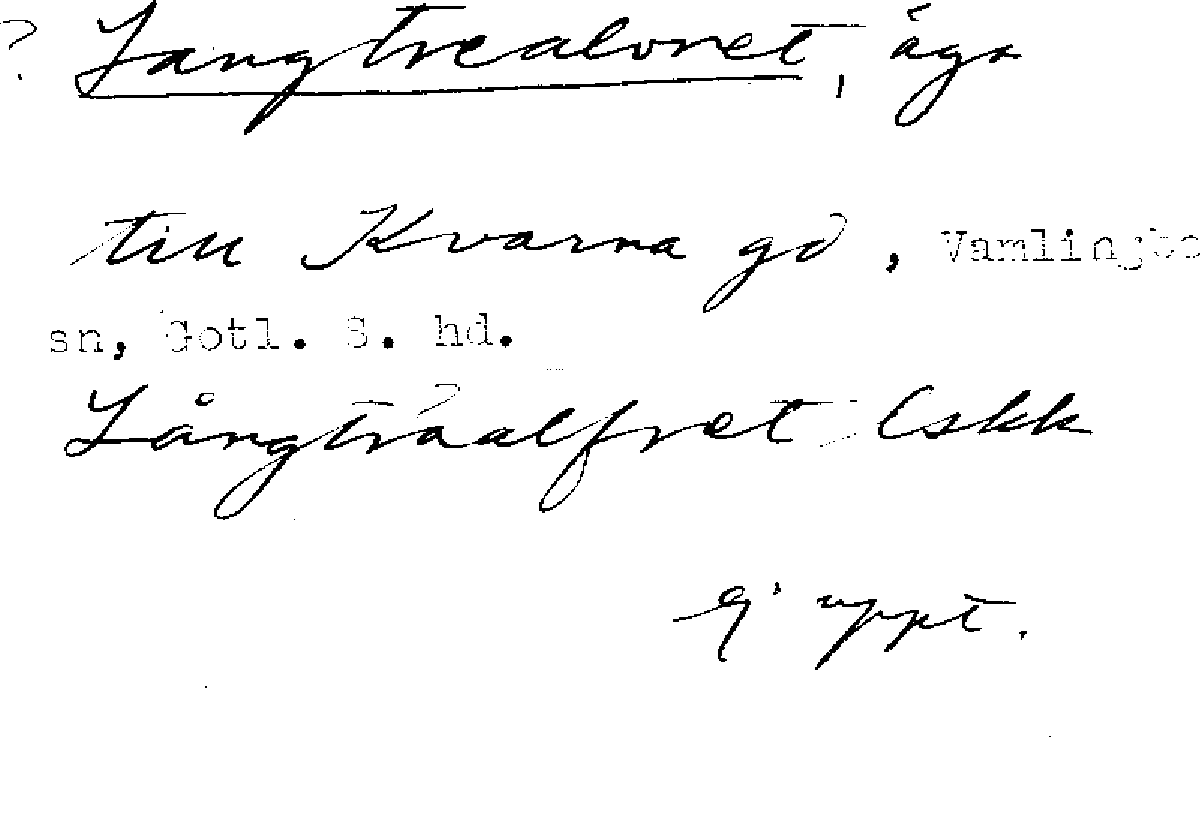 ? Langtrealvret, äga
till Kvarna gd, Vamlingbo
sn, Gotl. S. hd.
Långtråalfret Lskk
Ej uppt.